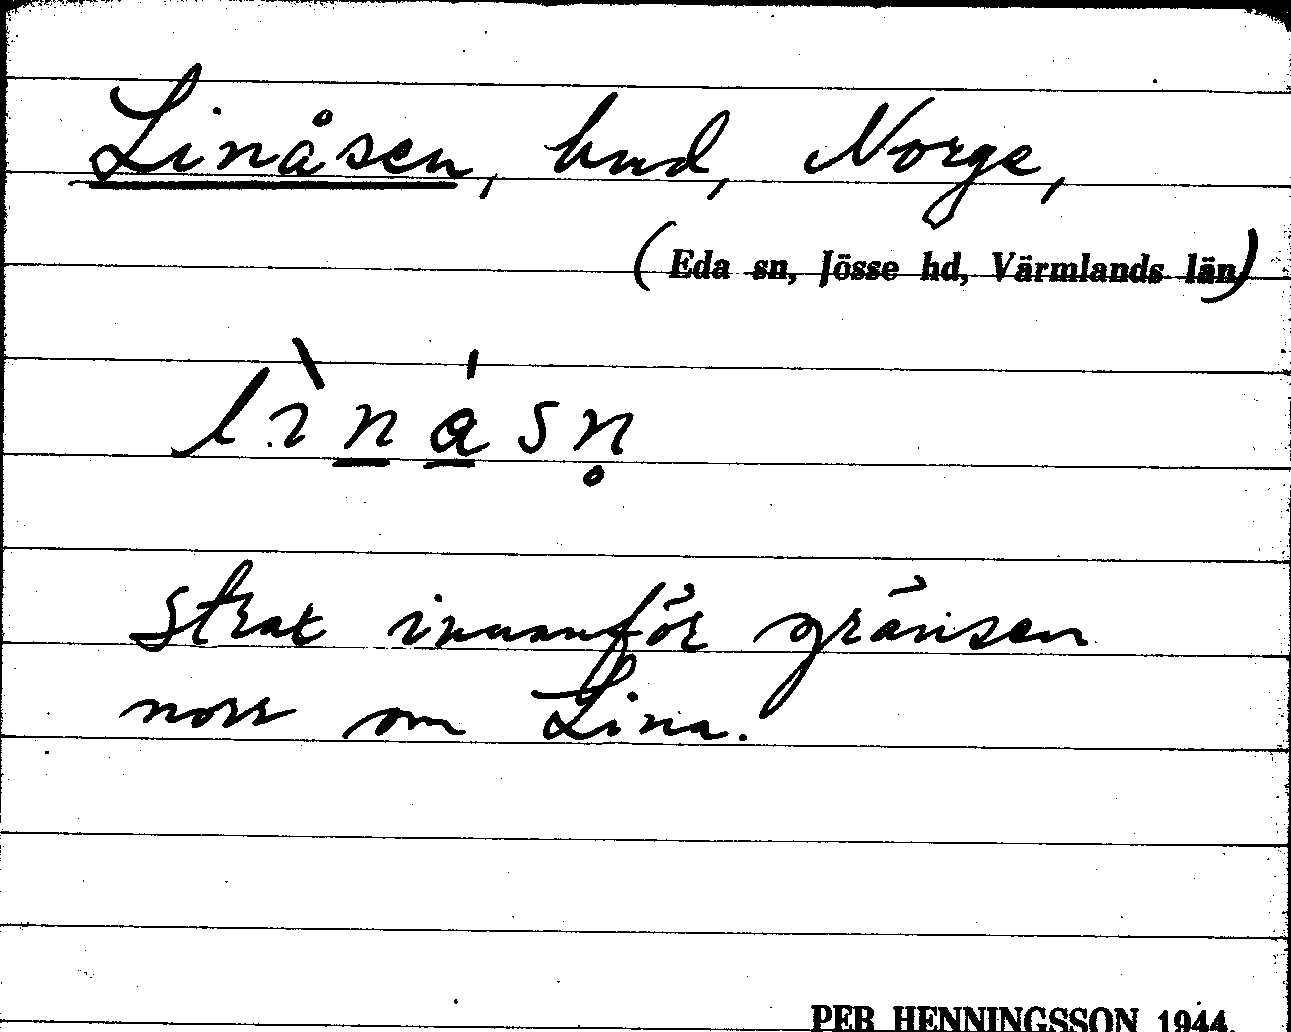 Linåsen, hmd, Norge,
(Eda sn, Jösse hd, Värmlands län)
lìnásn̥
strax innanför gränsen
norr om Lina.
PER HENNINGSSON 1944.